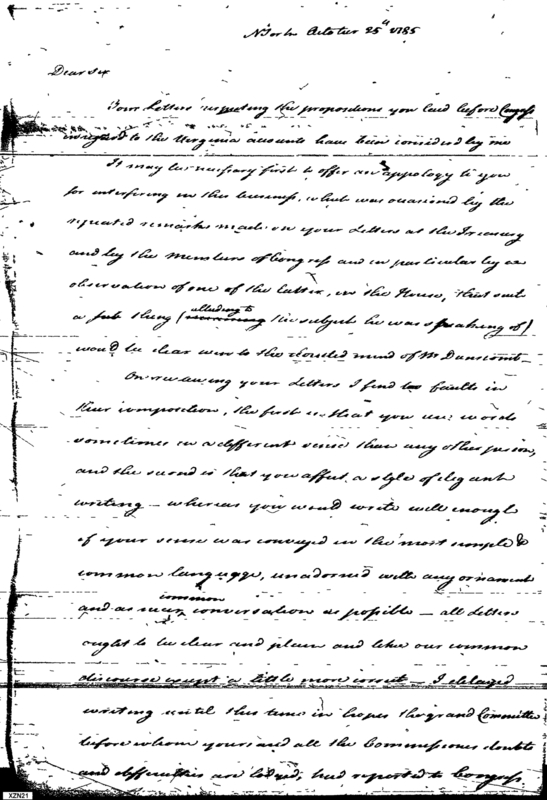 N York October 25th 1785
Dear Sir
Your Letters respecting the propositions you laid before Congress
in regard to the Virginia accounts have been considered by me
It may be necessary first to offer an appology to you
for interfering in this business, what was occasioned by the
repeated remarks made on your Letters at the Treasury
and by the Members of Congress and in particular by an
observation of one of the latter, in the House, that such
a thing (alluding to the subject he was speaking of)
would be clear even to the clouded mind of Mr Dunscomb—
On reviewing your Letters I find two faults in
their composition, the first is that you use words
sometimes in a different sense than any other person,
and the second is that you affect a style of elegant
writing — whereas you would write well enough
if your sense was conveyed in the most simple &
common language, unadorned with any ornament
and as near common conversation as possible — all Letters
ought to be clear and plain and like our common
discourse except a little more correct — I delayed
writing until this time in hopes the grand Committee
before whom yours and all the Commissioners doubts
and difficulties are lodged, had reported to Congress.
XZN21